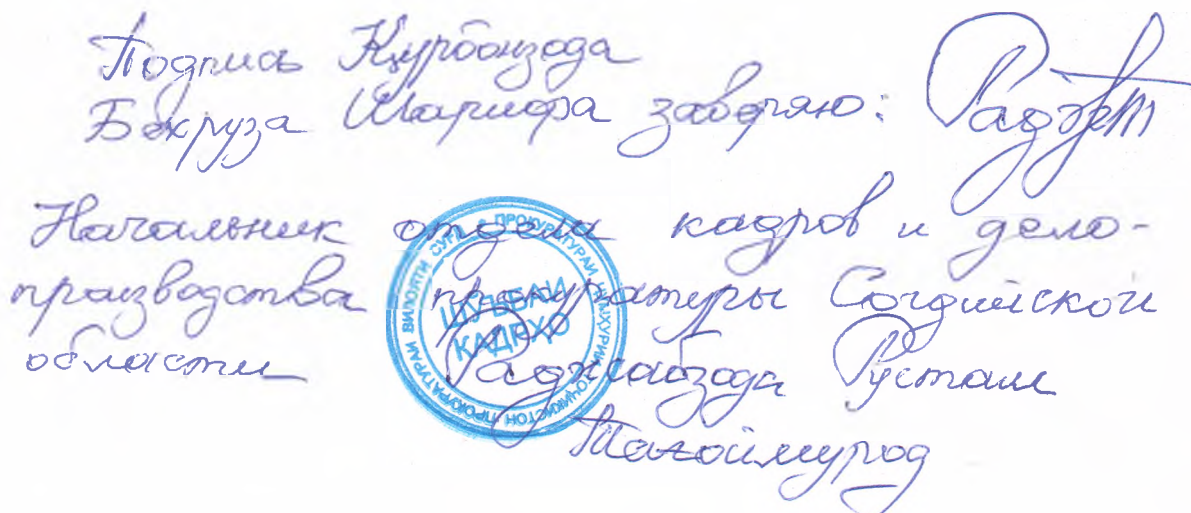 Подпись Курбонзода
Бехруза Шарифа заверяю:
Начальник отдела кадров и дело-
производства прокуратуры Согдийской
области Раджабзода Рустам
Тагоймурод
ШУЪБАИ
КАДРҲО
ПРОКУРАТУРАИ ВИЛОЯТИ СУҒД
ПРОКУРАТУРАИ ҶУМҲУРИИ ТОҶИКИСТОН